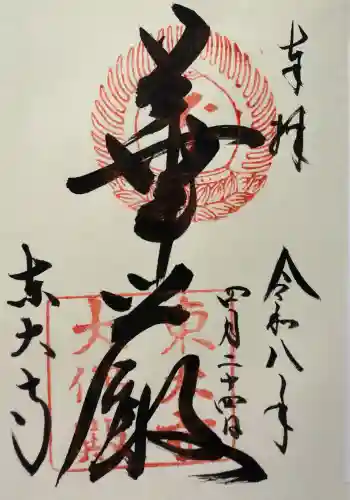 奉拝
令和八年
四月二十四日
華厳
東大寺
東大寺
大仏殿